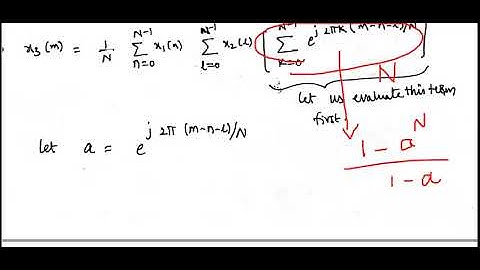 x₃(m) = 1/N Σ_{n=0}^{N-1} x₁(n) Σ_{l=0}^{N-1} x₂(l) [ Σ_{k=0}^{N-1} e^{j2πk(m-n-l)/N} ]
N
let us evaluate this term
first.
let a = e^{j2π(m-n-l)/N}
1 - a^N
1 - a